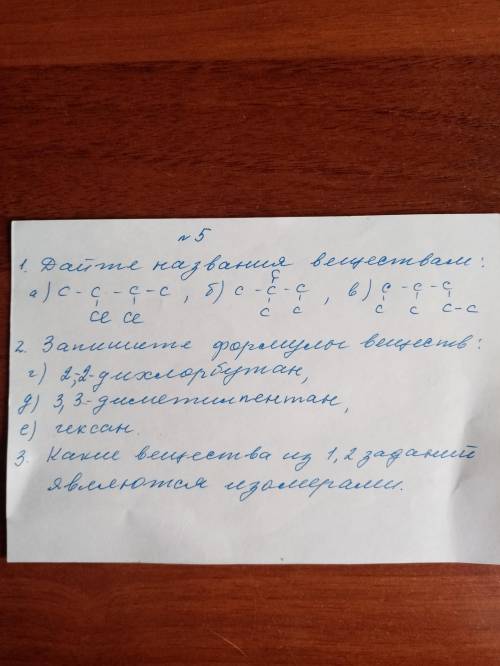 №5
1. Дайте названия веществам:
а) C - C - C - C, б) C - C - C, в) C - C - C
Cl Cl
C
C C
C C C - C
2. Запишите формулы веществ:
г) 2,2-дихлорбутан,
д) 3,3-диметилпентан,
е) гексан.
3. Какие вещества из 1,2 заданий
являются изомерами.